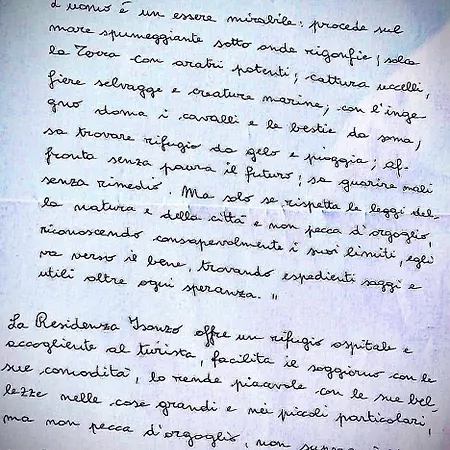 L'uomo è un essere mirabile: procede sul
mare spumeggiante sotto onde rigonfie; solca
la Terra con aratri potenti; cattura uccelli,
fiere selvagge e creature marine; con l'inge
gno doma i cavalli e le bestie da soma;
sa trovare rifugio da gelo e pioggia; af-
fronta senza paura il futuro; sa guarire mali
senza rimedio. Ma solo se rispetta le leggi del-
la natura e della città e non pecca d'orgoglio,
riconoscendo consapevolmente i suoi limiti, egli
va verso il bene, trovando espedienti saggi e
utili oltre ogni speranza."
La Residenza Isonzo offre un rifugio ospitale e
accogliente al turista, facilita il soggiorno con le
sue comodità, lo rende piacevole con le sue bel-
lezze nelle cose grandi e nei piccoli particolari,
ma non pecca d'orgoglio, non